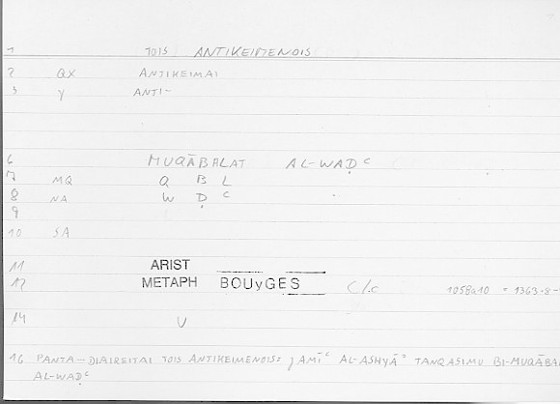 1 TOIS ANTIKEIMENOIS
2 QX ANTIKEIMAI
3 Y ANTI-
6 MUQĀBALAT AL-WAḌᶜ
7 MQ Q B L
8 NA W Ḍ ᶜ
9
10 SA
11 ARIST
12 METAPH BOUyGES C/.c 1058a10 = 1363-8-
14 V
16 PANTA-DIAIREITAI TOIS ANTIKEIMENOIS: JAMĪᶜ AL-ASHYĀʾ TANQASIMU BI-MUQĀBA
AL-WAḌᶜ